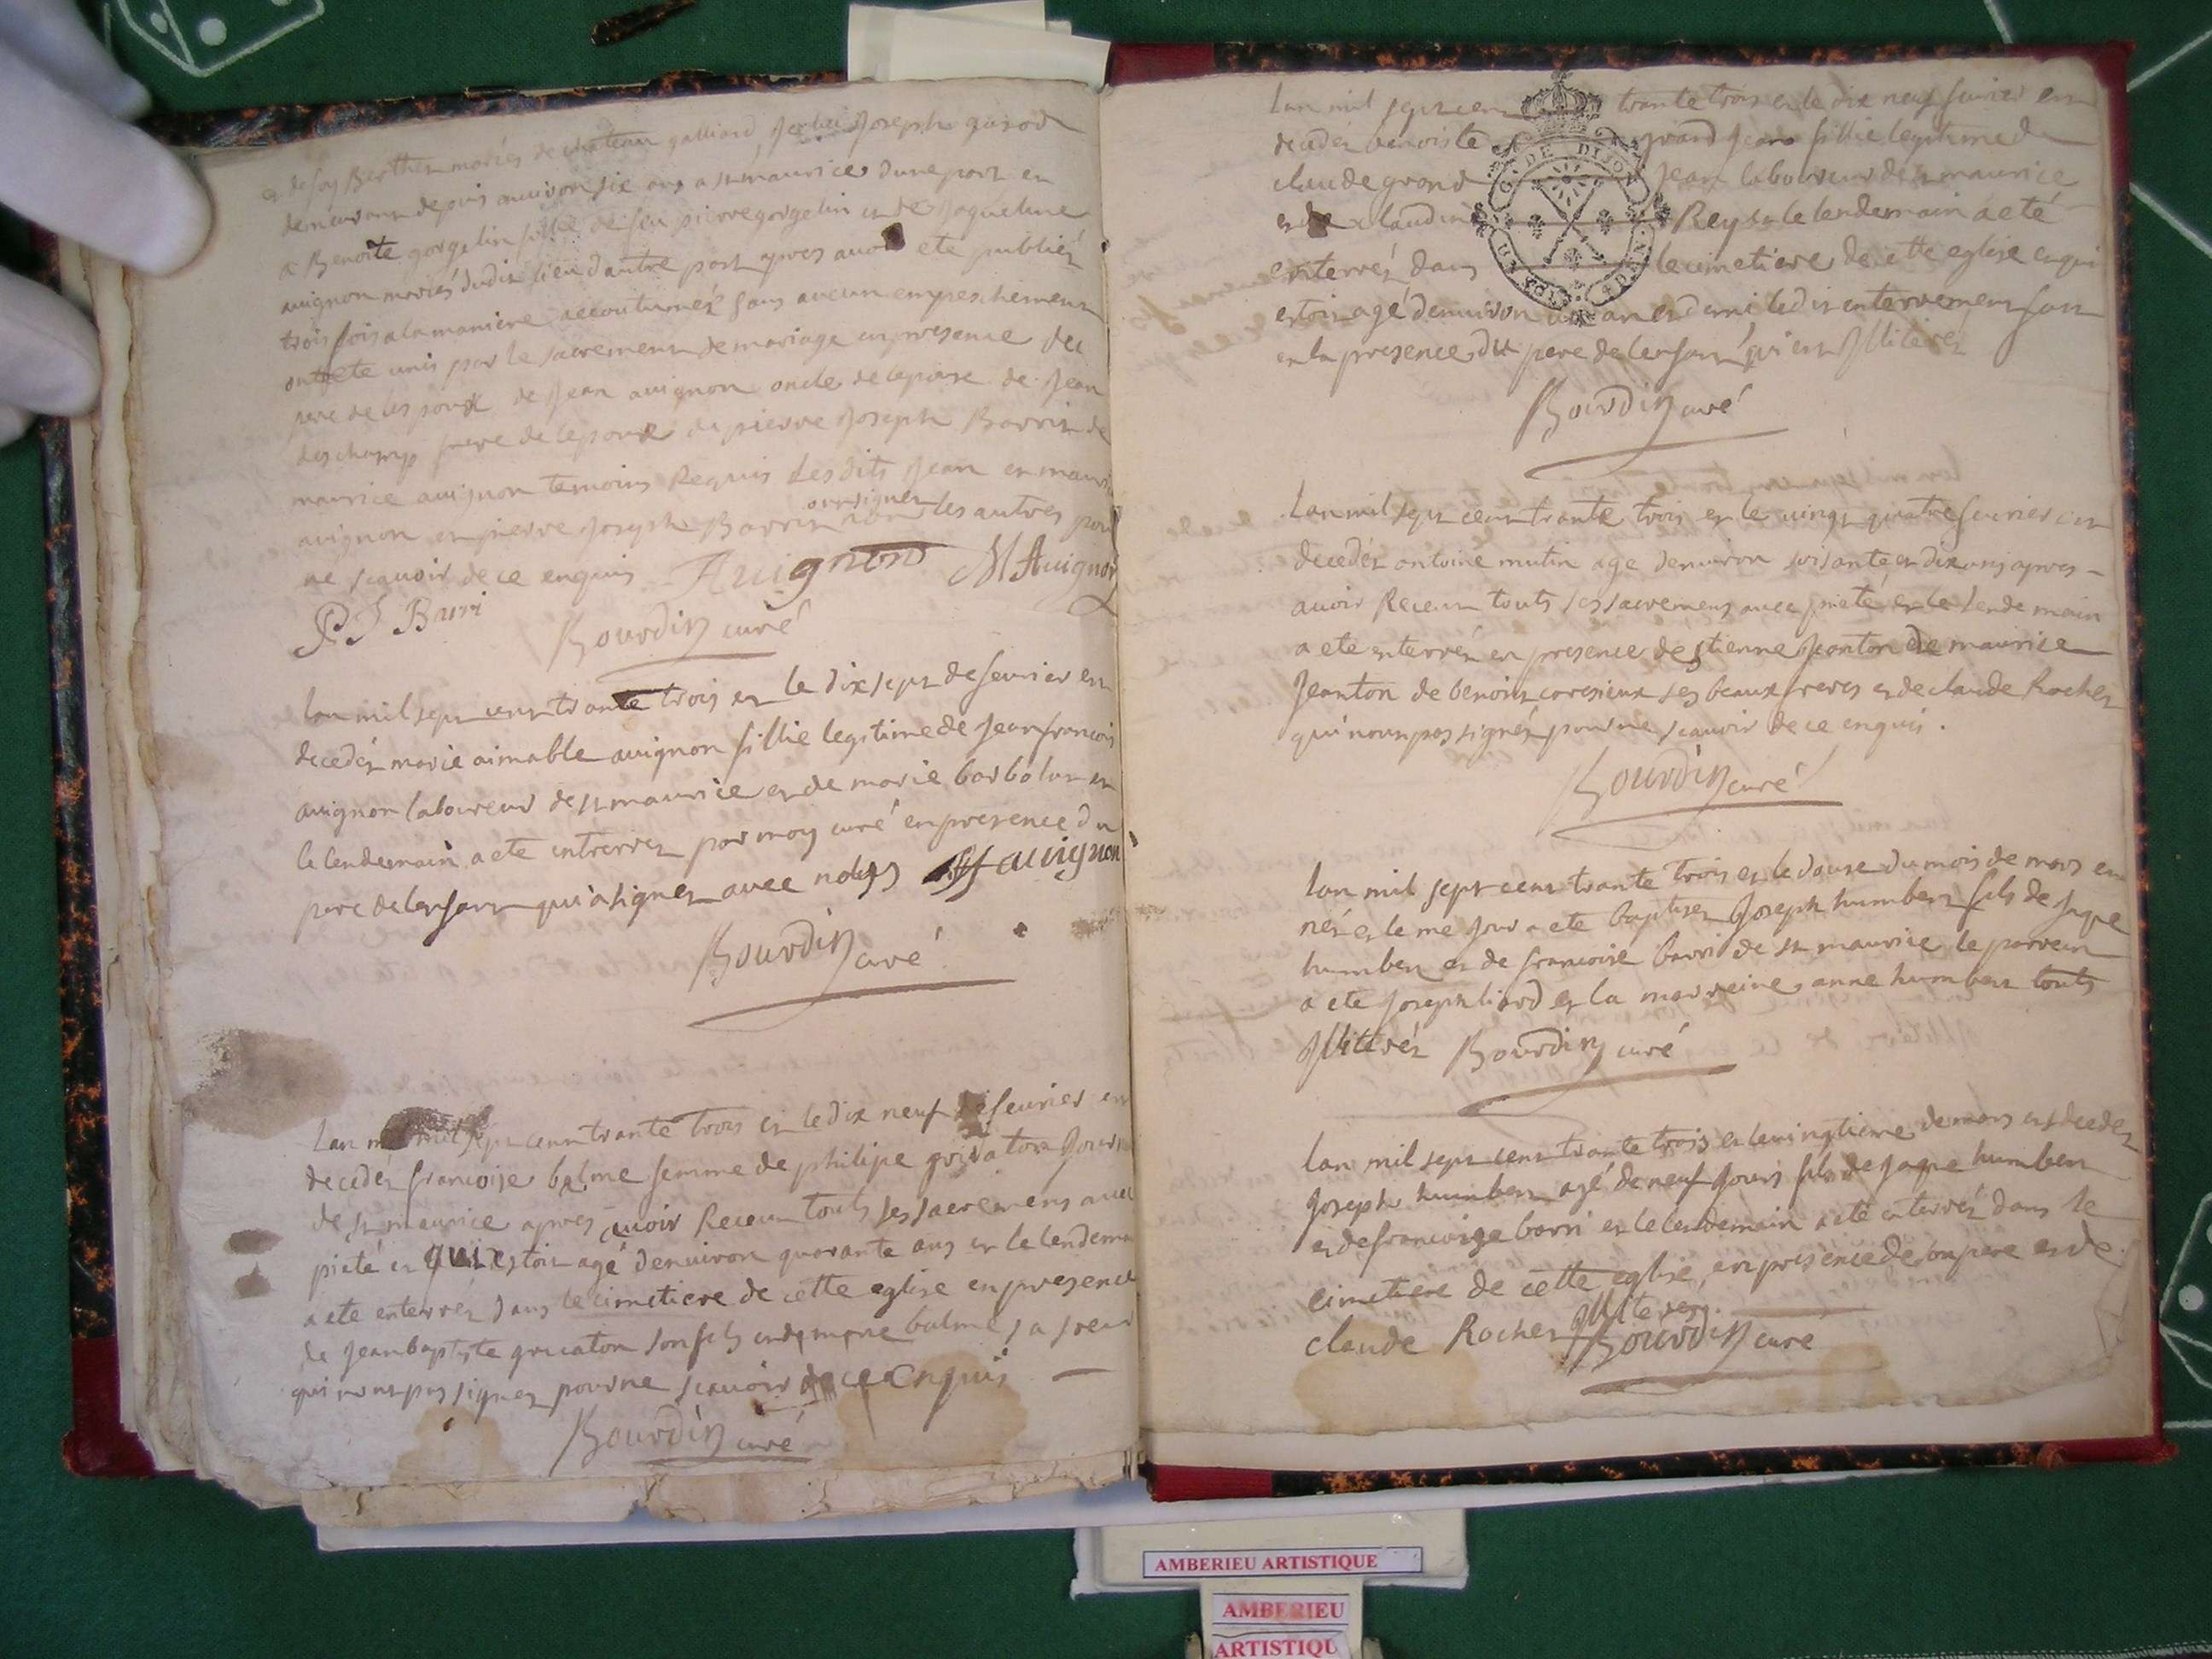 de foy Berthet mariés de chateau galliard Joseph
demeurant depuis environ six ans a st maurice dune part et
a Benoite gorgelin fillie de feu pierre gorgelin et de Jaqueline
avignon mariés dudit lieu dautre part apres avoir ete publiéz
trois fois a la maniere accoutumeéz sans aucun empeschement
ont ete unis par le sacrement de mariage en presence du
pere de lespoux de Jean avignon oncle de lepouse de Jean
deschamp frere de lepoux de pierre Joseph Barrit de
maurice avignon temoins Requis Lesdits Jean et mauri
avignon et pierre Joseph Barrit ont signez non les autres pour
ne scavoir de ce enquis Avignon M Avignon
P J Burri
Bourdin curé
lan mil sept cent trante trois et le dix sept de fevrier est
decedéz marie aimable avignon fillie legitime de Jean francois
avignon laboureur de st maurice et de marie barbolat et
le lendemain a ete entrerrez par moy curé en presence du
pere de lenfant qui a signez avec nous JF avignon
Bourdin curé
Lan mil sept cent trante trois et le dix neuf de fevrier est
decedéz francoise balme femme de philipe
de st maurice apres avoir Receu touts ses sacremens avec
pieté et qui estoit agé denviron quarante ans et le lendemain
a ete enterréz dans le cimetiere de cette eglise en presence
de Jean baptiste son fils et de balme sa soeur
qui nont pas signez pour ne scavoir de ce Enquis
Bourdin curé
Lan mil sept cent trante trois et le dix neuf fevrier est
decedéz benoiste grand Jean fillie legitime de
claude grand Jean laboureur de st maurice
et de claudine Rey et le lendemain a eté
enterréz dans le cimetiere de cette eglise et qui
estoit agé denviron un an et demi ledit enterrement fait
en la presence du pere de lenfant qui est Illiterez
Bourdin curé
Lan mil sept cent trante trois et le vingt quatre fevrier est
decedéz antoine mutin age denviron soisante et dix ans apres
avoir Receu touts ses sacremens avec pieté et le lendemain
a ete enterréz en presence de Etienne Jeanton de maurice
Jeanton de benoit coresieux ses beaux freres et de claude Rochez
qui nont pas signéz pour ne scavoir de ce enquis.
Bourdin curé
Lan mil sept cent trante trois et le douse du mois de mars est
néz et le me Jour a ete baptisez Joseph humbert fils de Jaque
humbert et de francoise barri de st maurice le parrein
a ete Joseph liard et la marreine anne humbert touts
Illiteréz Bourdin curé
Lan mil sept cent trante trois et le vingtieme de mars est decedez
Joseph humbert agé de neuf Jours fils de Jaque humbert
et de francoise barri et le lendemain a ete enterréz dans le
cimetiere de cette eglise en presence de son pere et de
claude Rochez Illiterez.
Bourdin curé
G. DE DIJON
AMBERIEU ARTISTIQUE
AMBERIEU
ARTISTIQU